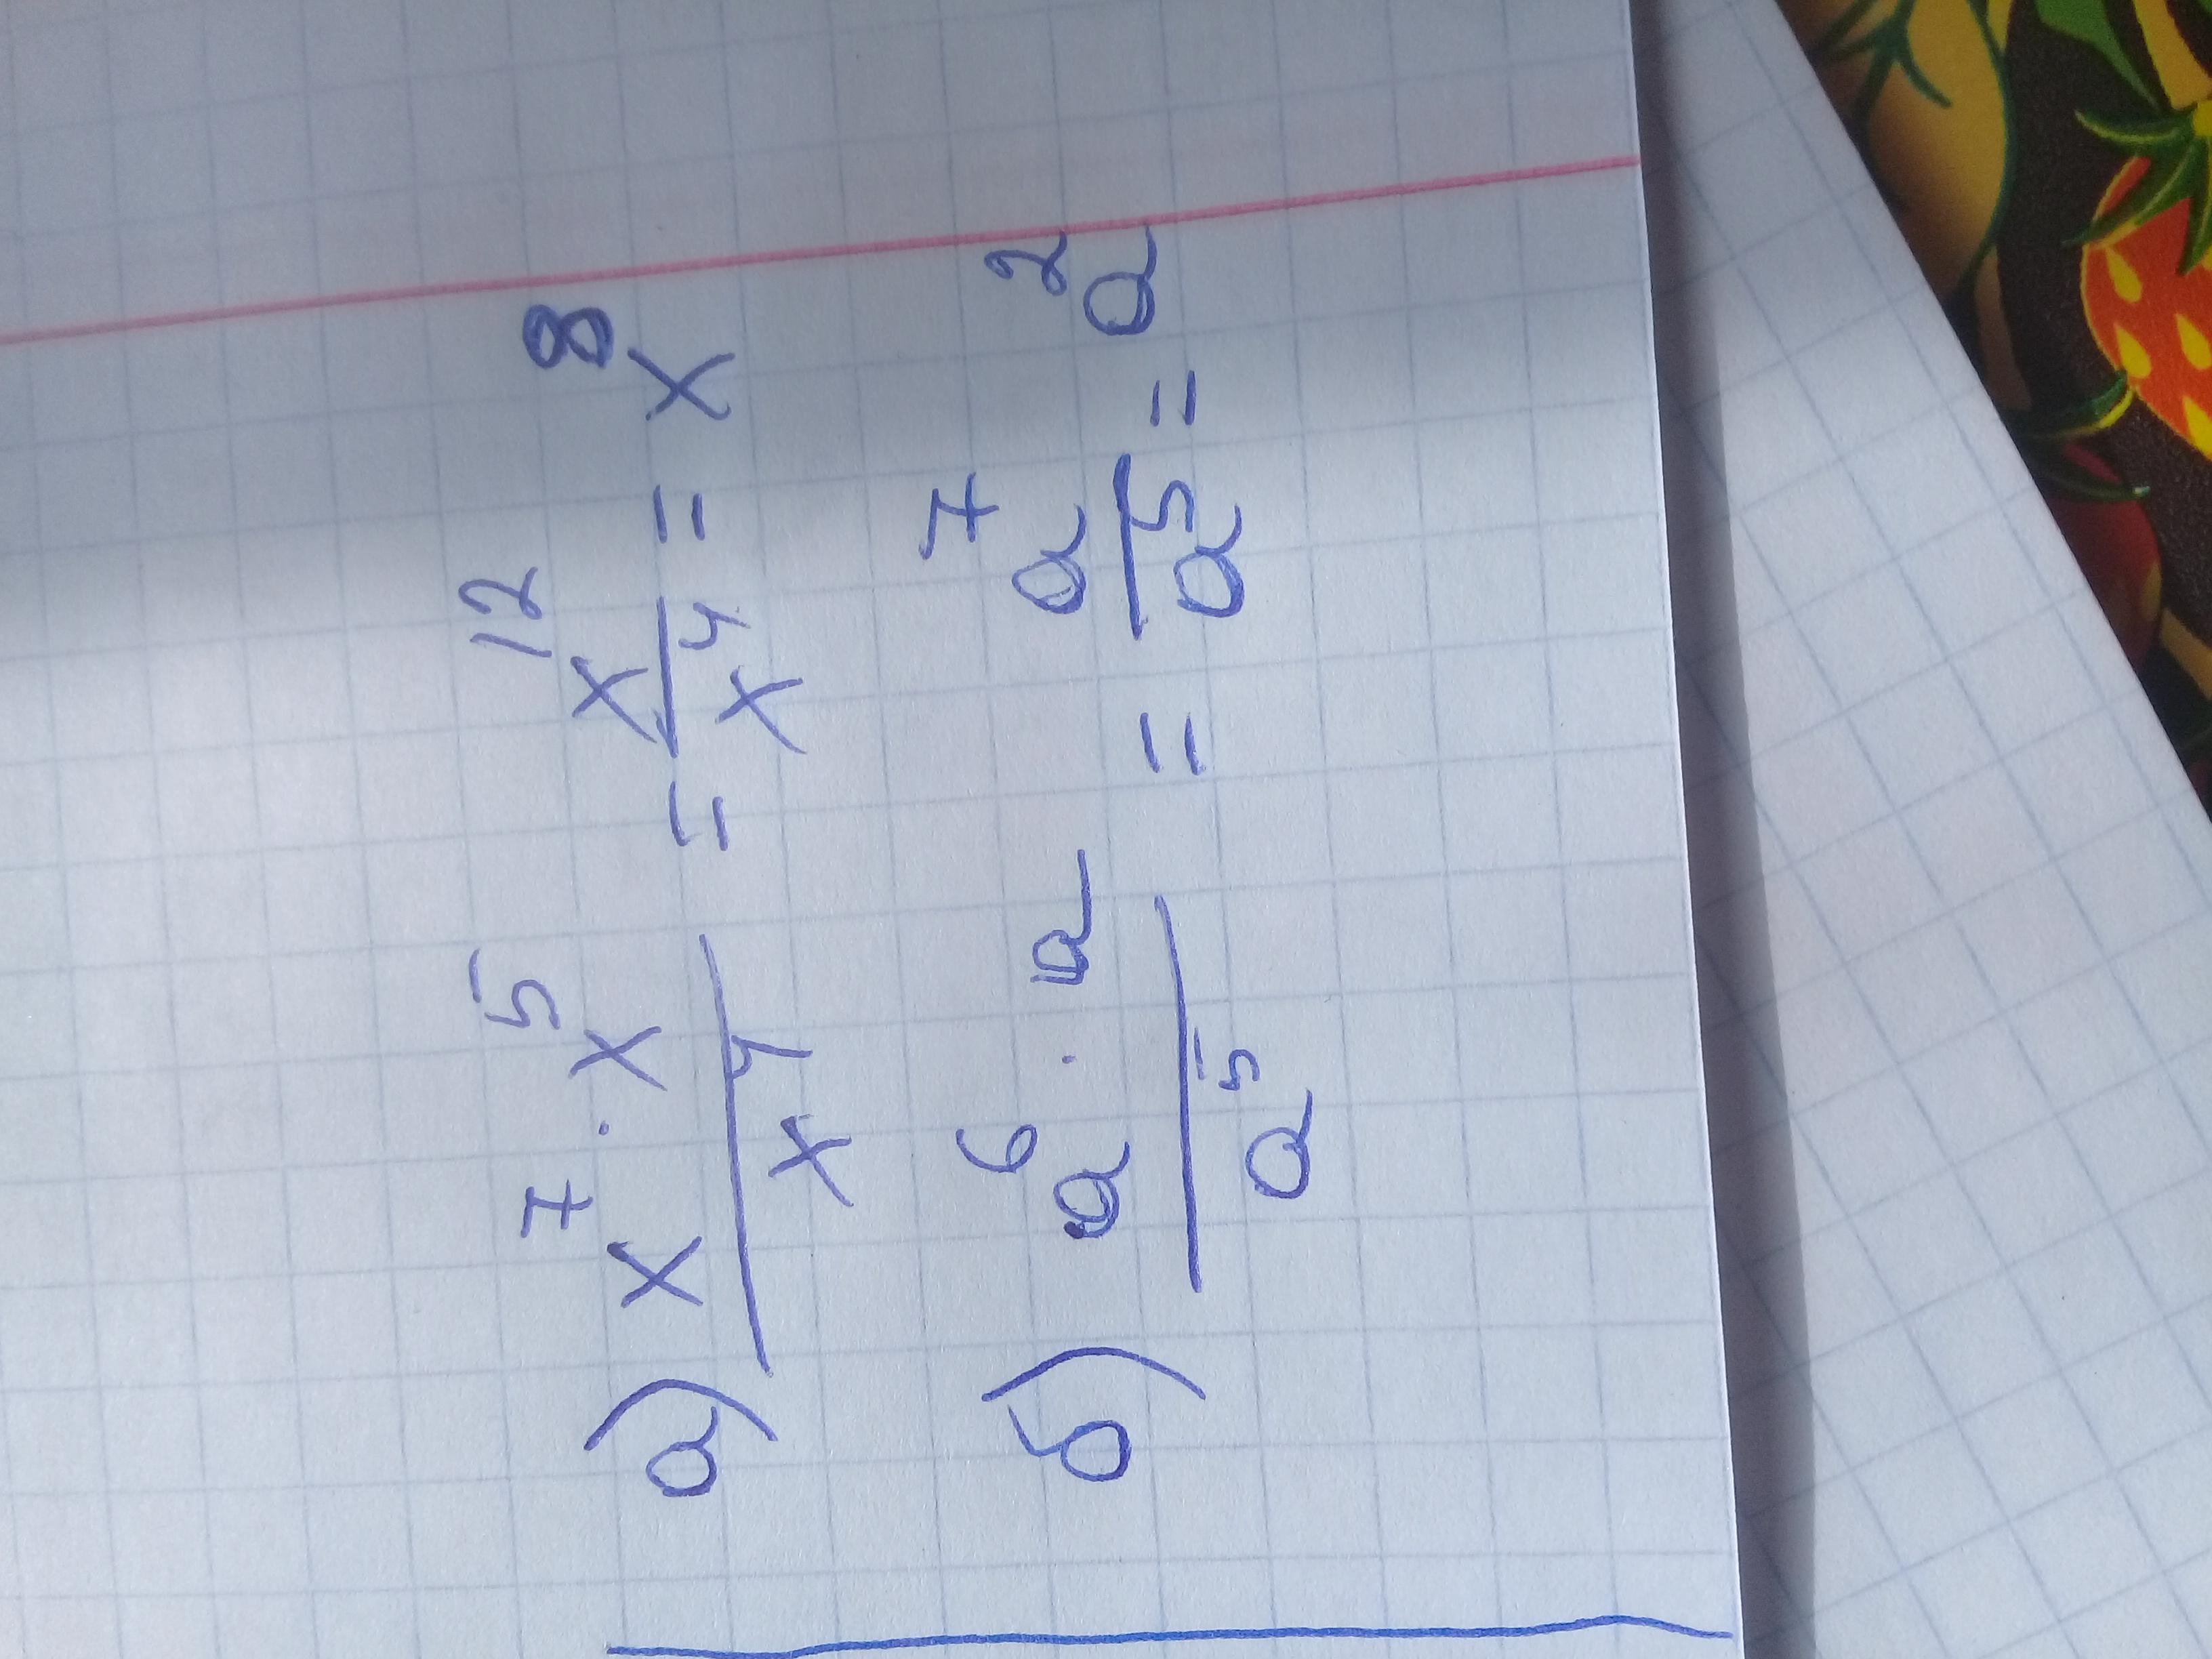 а) x⁷ · x⁵ / x⁴ = x¹² / x⁴ = x⁸
б) a⁶ · a / a⁵ = a⁷ / a⁵ = a²